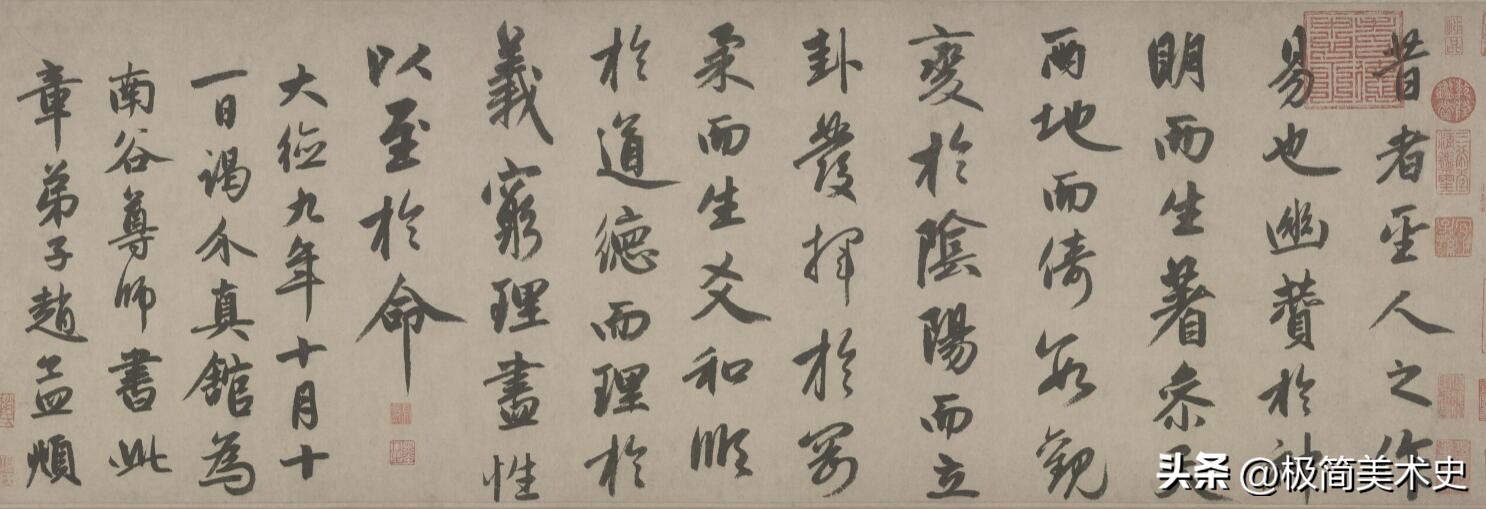 昔者聖人之作
易也幽贊於神
明而生蓍參天
兩地而倚數觀
變於陰陽而立
卦發揮於剛
柔而生爻和順
於道德而理於
義窮理盡性
以至於命
大德九年十月十
一日謁介真館為
南谷尊師書此
章弟子趙孟頫
头条 @极简美术史